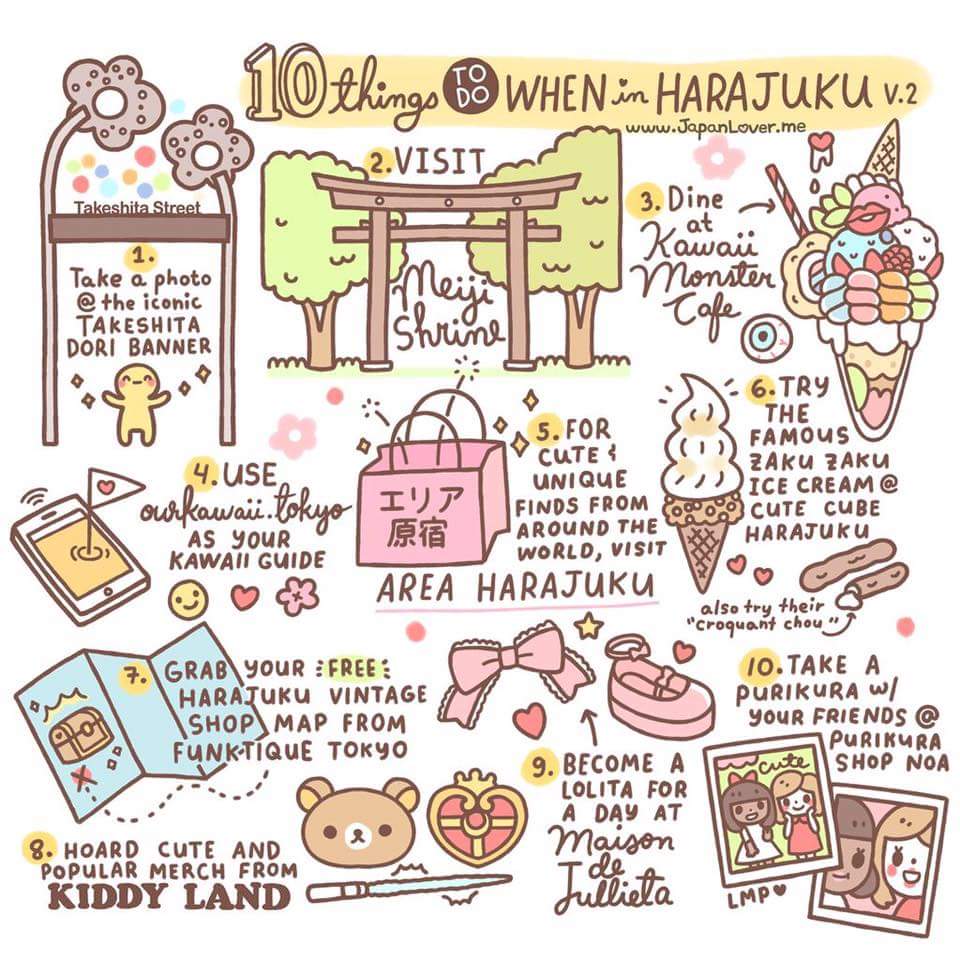 10 things TO DO WHEN in HARAJUKU V.2
www.JapanLover.me
Takeshita Street
1.
Take a photo
@ the iconic
TAKESHITA
DORI BANNER
2. VISIT
Meiji
Shrine
3. Dine
at
Kawaii
Monster
Cafe
4. USE
ourkawaii.tokyo
AS YOUR
KAWAII GUIDE
エリア
原宿
5. FOR
CUTE &
UNIQUE
FINDS FROM
AROUND THE
WORLD, VISIT
AREA HARAJUKU
6. TRY
THE
FAMOUS
ZAKU ZAKU
ICE CREAM @
CUTE CUBE
HARAJUKU
also try their
"croquant chou"
7. GRAB YOUR FREE
HARAJUKU VINTAGE
SHOP MAP FROM
FUNKTIQUE TOKYO
8. HOARD CUTE AND
POPULAR MERCH FROM
KIDDY LAND
9. BECOME A
LOLITA FOR
A DAY AT
Maison
de
Jullieta
10. TAKE A
PURIKURA W/
YOUR FRIENDS @
PURIKURA
SHOP NOA
Cute
LMP